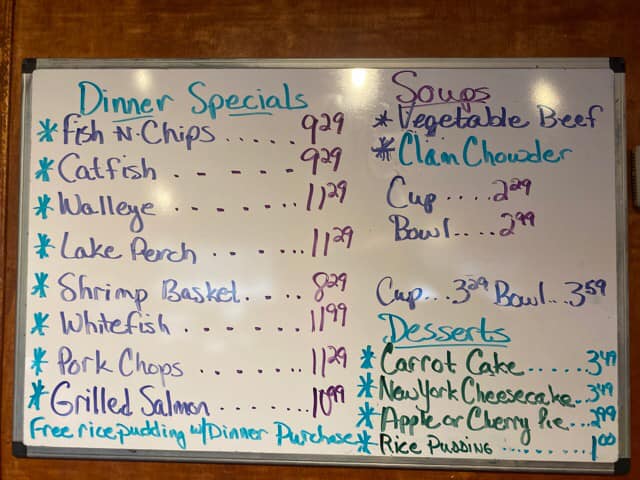 Dinner Specials
* Fish -N- Chips ..... 9.29
* Catfish . - - - - . 9.29
* Walleye . - - . . . . 11.29
* Lake Perch . . - . . . 11.29
* Shrimp Basket. . . . 8.29
* Whitefish . - - . . . 11.99
* Pork Chops . . - . . . 11.29
* Grilled Salmon . . . . . . . 10.99
Free rice pudding w/Dinner Purchase
Soups
* Vegetable Beef
* Clam Chowder
Cup .... 2.29
Bowl .... 2.99
Cup... 3.29 Bowl... 3.59
Desserts
* Carrot Cake ...... 3.49
* New York Cheesecake.. 3.49
* Apple or Cherry Pie... 2.99
* Rice Pudding ......... 1.00